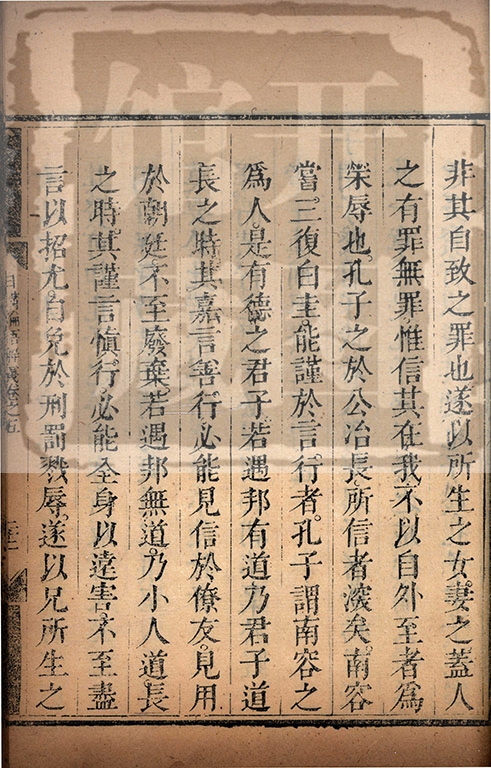 非其自致之罪也遂以所生之女妻之蓋人
之有罪無罪惟信其在我不以自外至者為
榮辱也。孔子之於公冶長。所信者深矣。南容
當三復白圭。能謹於言行者。孔子謂南容之
為人。是有德之君子若遇邦有道乃君子道
長之時。其嘉言善行。必能見信於僚友。見用
於朝廷。不至廢棄。若遇邦無道。乃小人道長
之時。其謹言慎行。必能全身以遠害。不至盡
言以招尤。自免於刑罰戮辱。遂以兄所生之